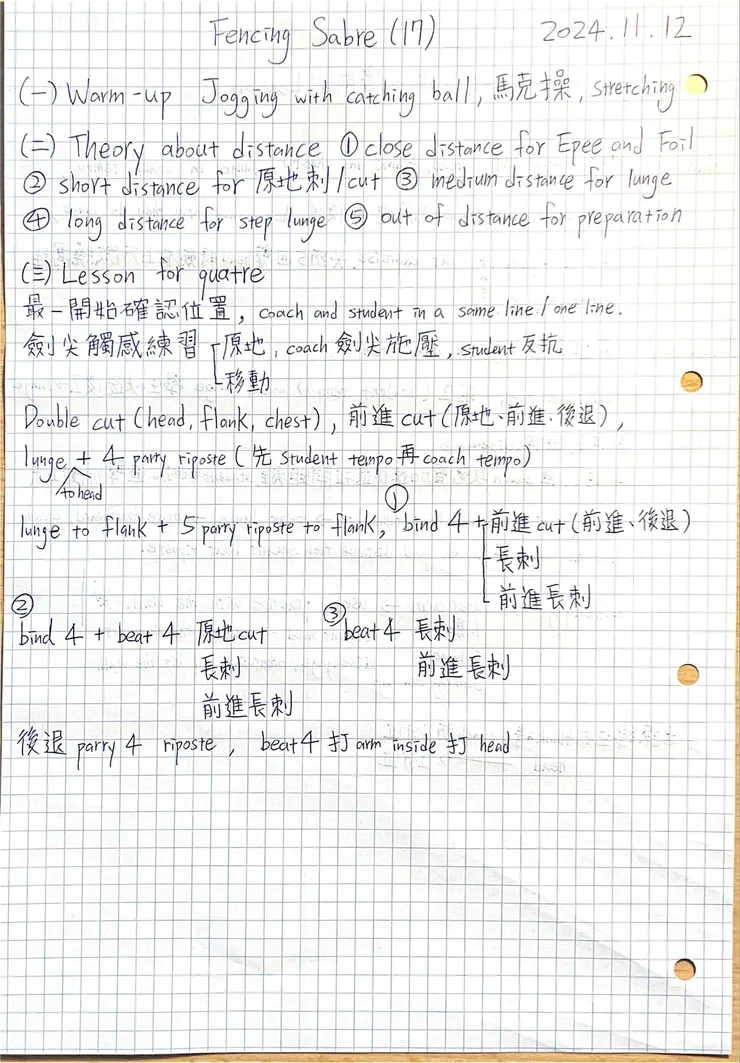 Fencing Sabre (17) 2024.11.12
(一) Warm-up Jogging with catching ball, 馬克操, stretching
(二) Theory about distance ① close distance for Epee and Foil
② short distance for 原地刺/cut ③ medium distance for lunge
④ long distance for step lunge ⑤ out of distance for preparation
(三) Lesson for quatre
最一開始確認位置, coach and student in a same line / one line.
劍尖觸感練習 原地, coach 劍尖施壓, student 反抗
移動
Double cut (head, flank, chest), 前進 cut (原地、前進、後退),
lunge + 4 parry riposte (先 student tempo 再 coach tempo)
to head
lunge to flank + 5 parry riposte to flank, ① bind 4 + 前進 cut (前進、後退)
長刺
前進長刺
② bind 4 + beat 4 原地 cut ③ beat 4 長刺
長刺 前進長刺
前進長刺
後退 parry 4 riposte, beat 4 打 arm inside 打 head